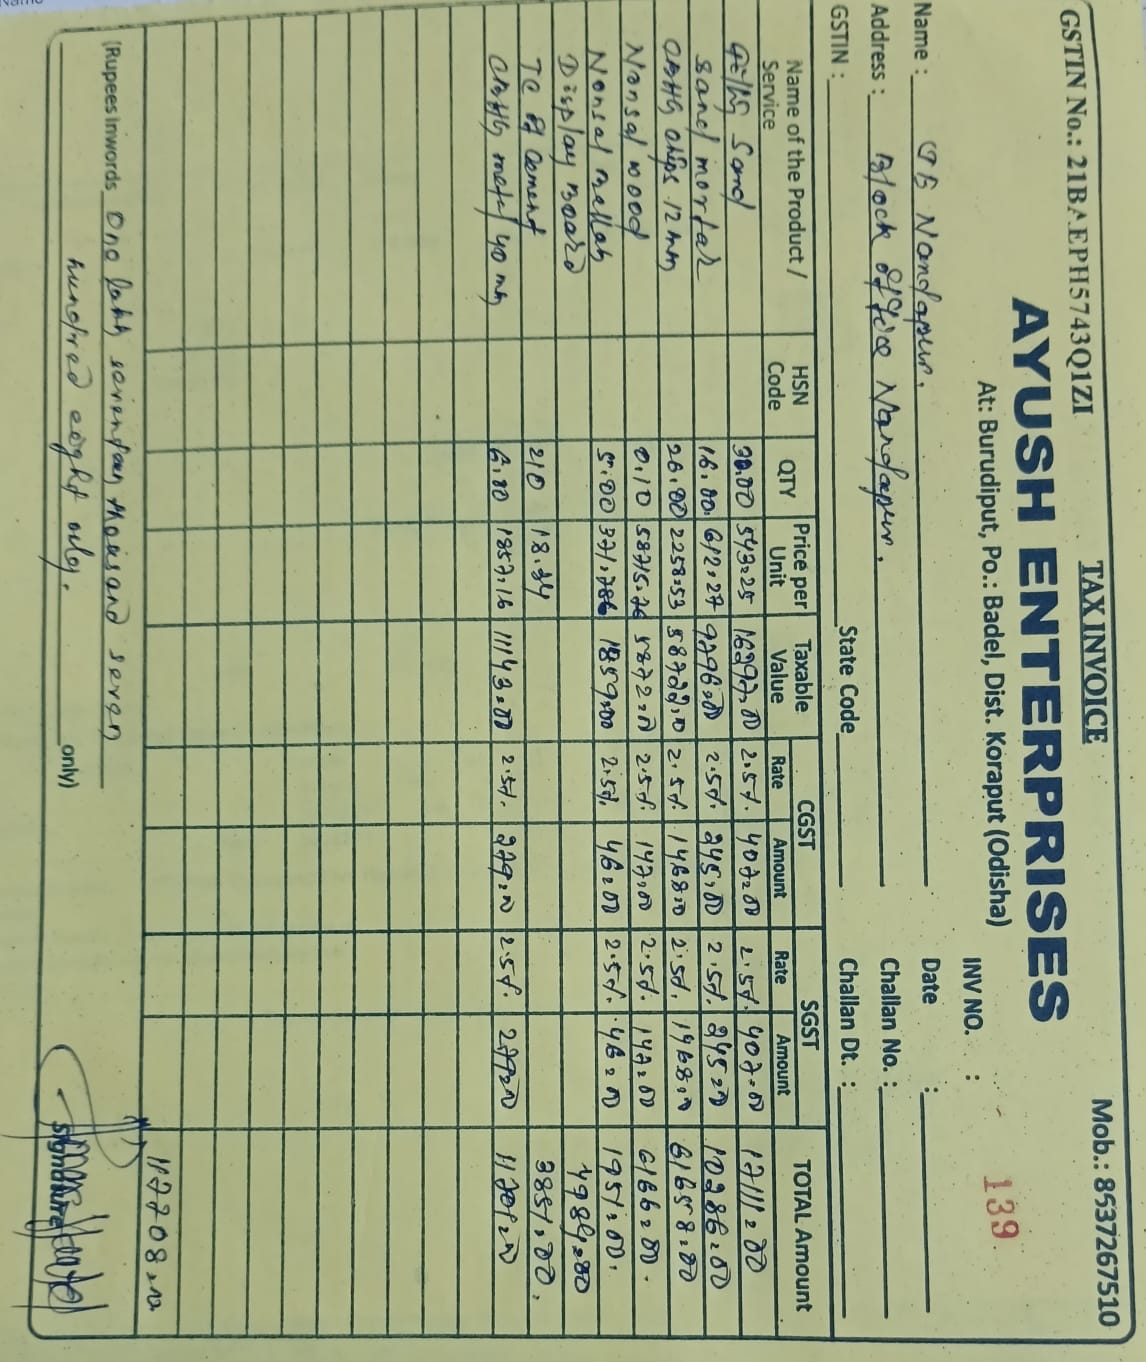 GSTIN No.: 21BAEPH5743Q1ZI TAX INVOICE Mob.: 8537267510
AYUSH ENTERPRISES
At: Burudiput, Po.: Badel, Dist. Koraput (Odisha)
INV NO. : 139
Name : Nandapur. Date :
Address : Block office Nandapur. Challan No. :
GSTIN : State Code Challan Dt. :
Name of the Product / Service HSN Code QTY Price per Unit Taxable Value CGST Rate Amount SGST Rate Amount TOTAL Amount
Sand 30.00 543.25 16297.00 2.5%. 407.00 2.5%. 407.00 17111.00
Sand mortar 16.00 612.27 9796.00 2.5%. 245.00 2.5%. 245.00 10286.00
chips 12 mm 26.00 2258.53 58722.00 2.5%. 1468.00 2.5%. 1468.00 61658.00
Nonsal wood 0.10 58715.76 5872.00 2.5%. 147.00 2.5%. 147.00 6166.00.
Nonsal Ballah 5.00 371.786 1859.00 2.5%. 46.00 2.5%. 46.00 1951.00.
Display Board
TC of cement 210 18.34 3851.00.
metal 40 mm 6.00 1857.16 11143.00 2.5%. 279.00 2.5%. 279.00 11701.00
117708.00
(Rupees Inwords One lakh seventeen thousand seven
hundred eight only. only)
Signature